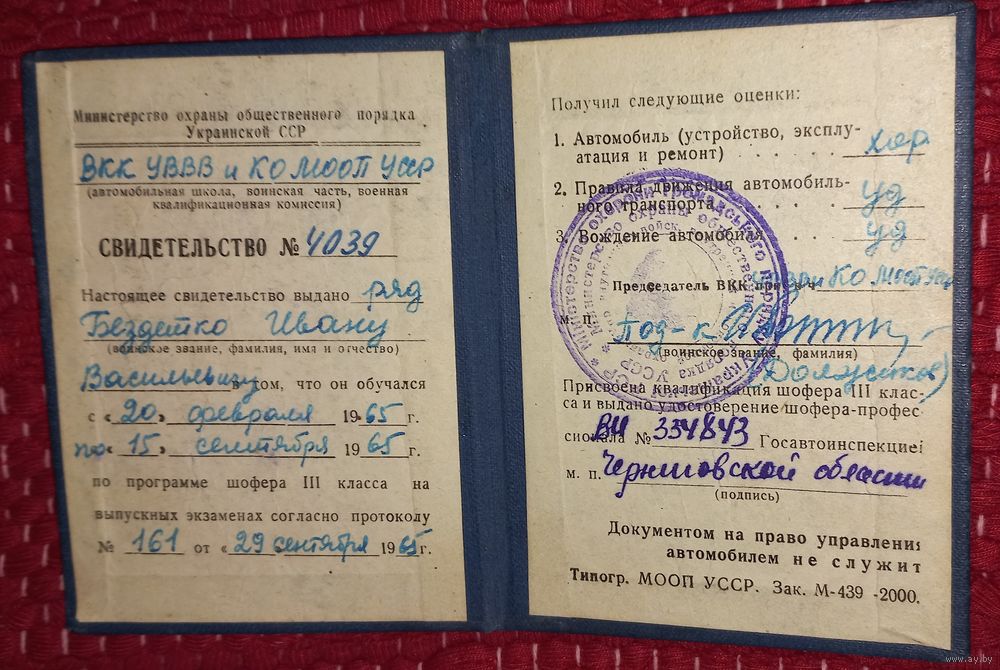 Министерство охраны общественного порядка
Украинской ССР
ВКК УВВВ и КО МООП УССР
(автомобильная школа, воинская часть, военная
квалификационная комиссия)
СВИДЕТЕЛЬСТВО № 4039
Настоящее свидетельство выдано ряд
Бездетко Ивану
(воинское звание, фамилия, имя и отчество)
Васильевичу в том, что он обучался
с «20» февраля 1965 г.
по «15» сентября 1965 г.
по программе шофера III класса на
выпускных экзаменах согласно протоколу
№ 161 от «29 сентября 1965 г.
Получил следующие оценки:
1. Автомобиль (устройство, эксплу-
атация и ремонт) . . . . . хор
2. Правила движения автомобиль-
ного транспорта . . . . . уд
3. Вождение автомобиля . . . . уд
Председатель ВКК при в/ч КО МООП УССР
м. п. Под-к
(воинское звание, фамилия)
Присвоена квалификация шофера III клас-
са и выдано удостоверение шофера-профес-
сионала № ВИ 334843 Госавтоинспекцией
м. п. Черниговской области
(подпись)
Документом на право управления
автомобилем не служит
Типогр. МООП УССР. Зак. М-439 -2000.
www.ay.by